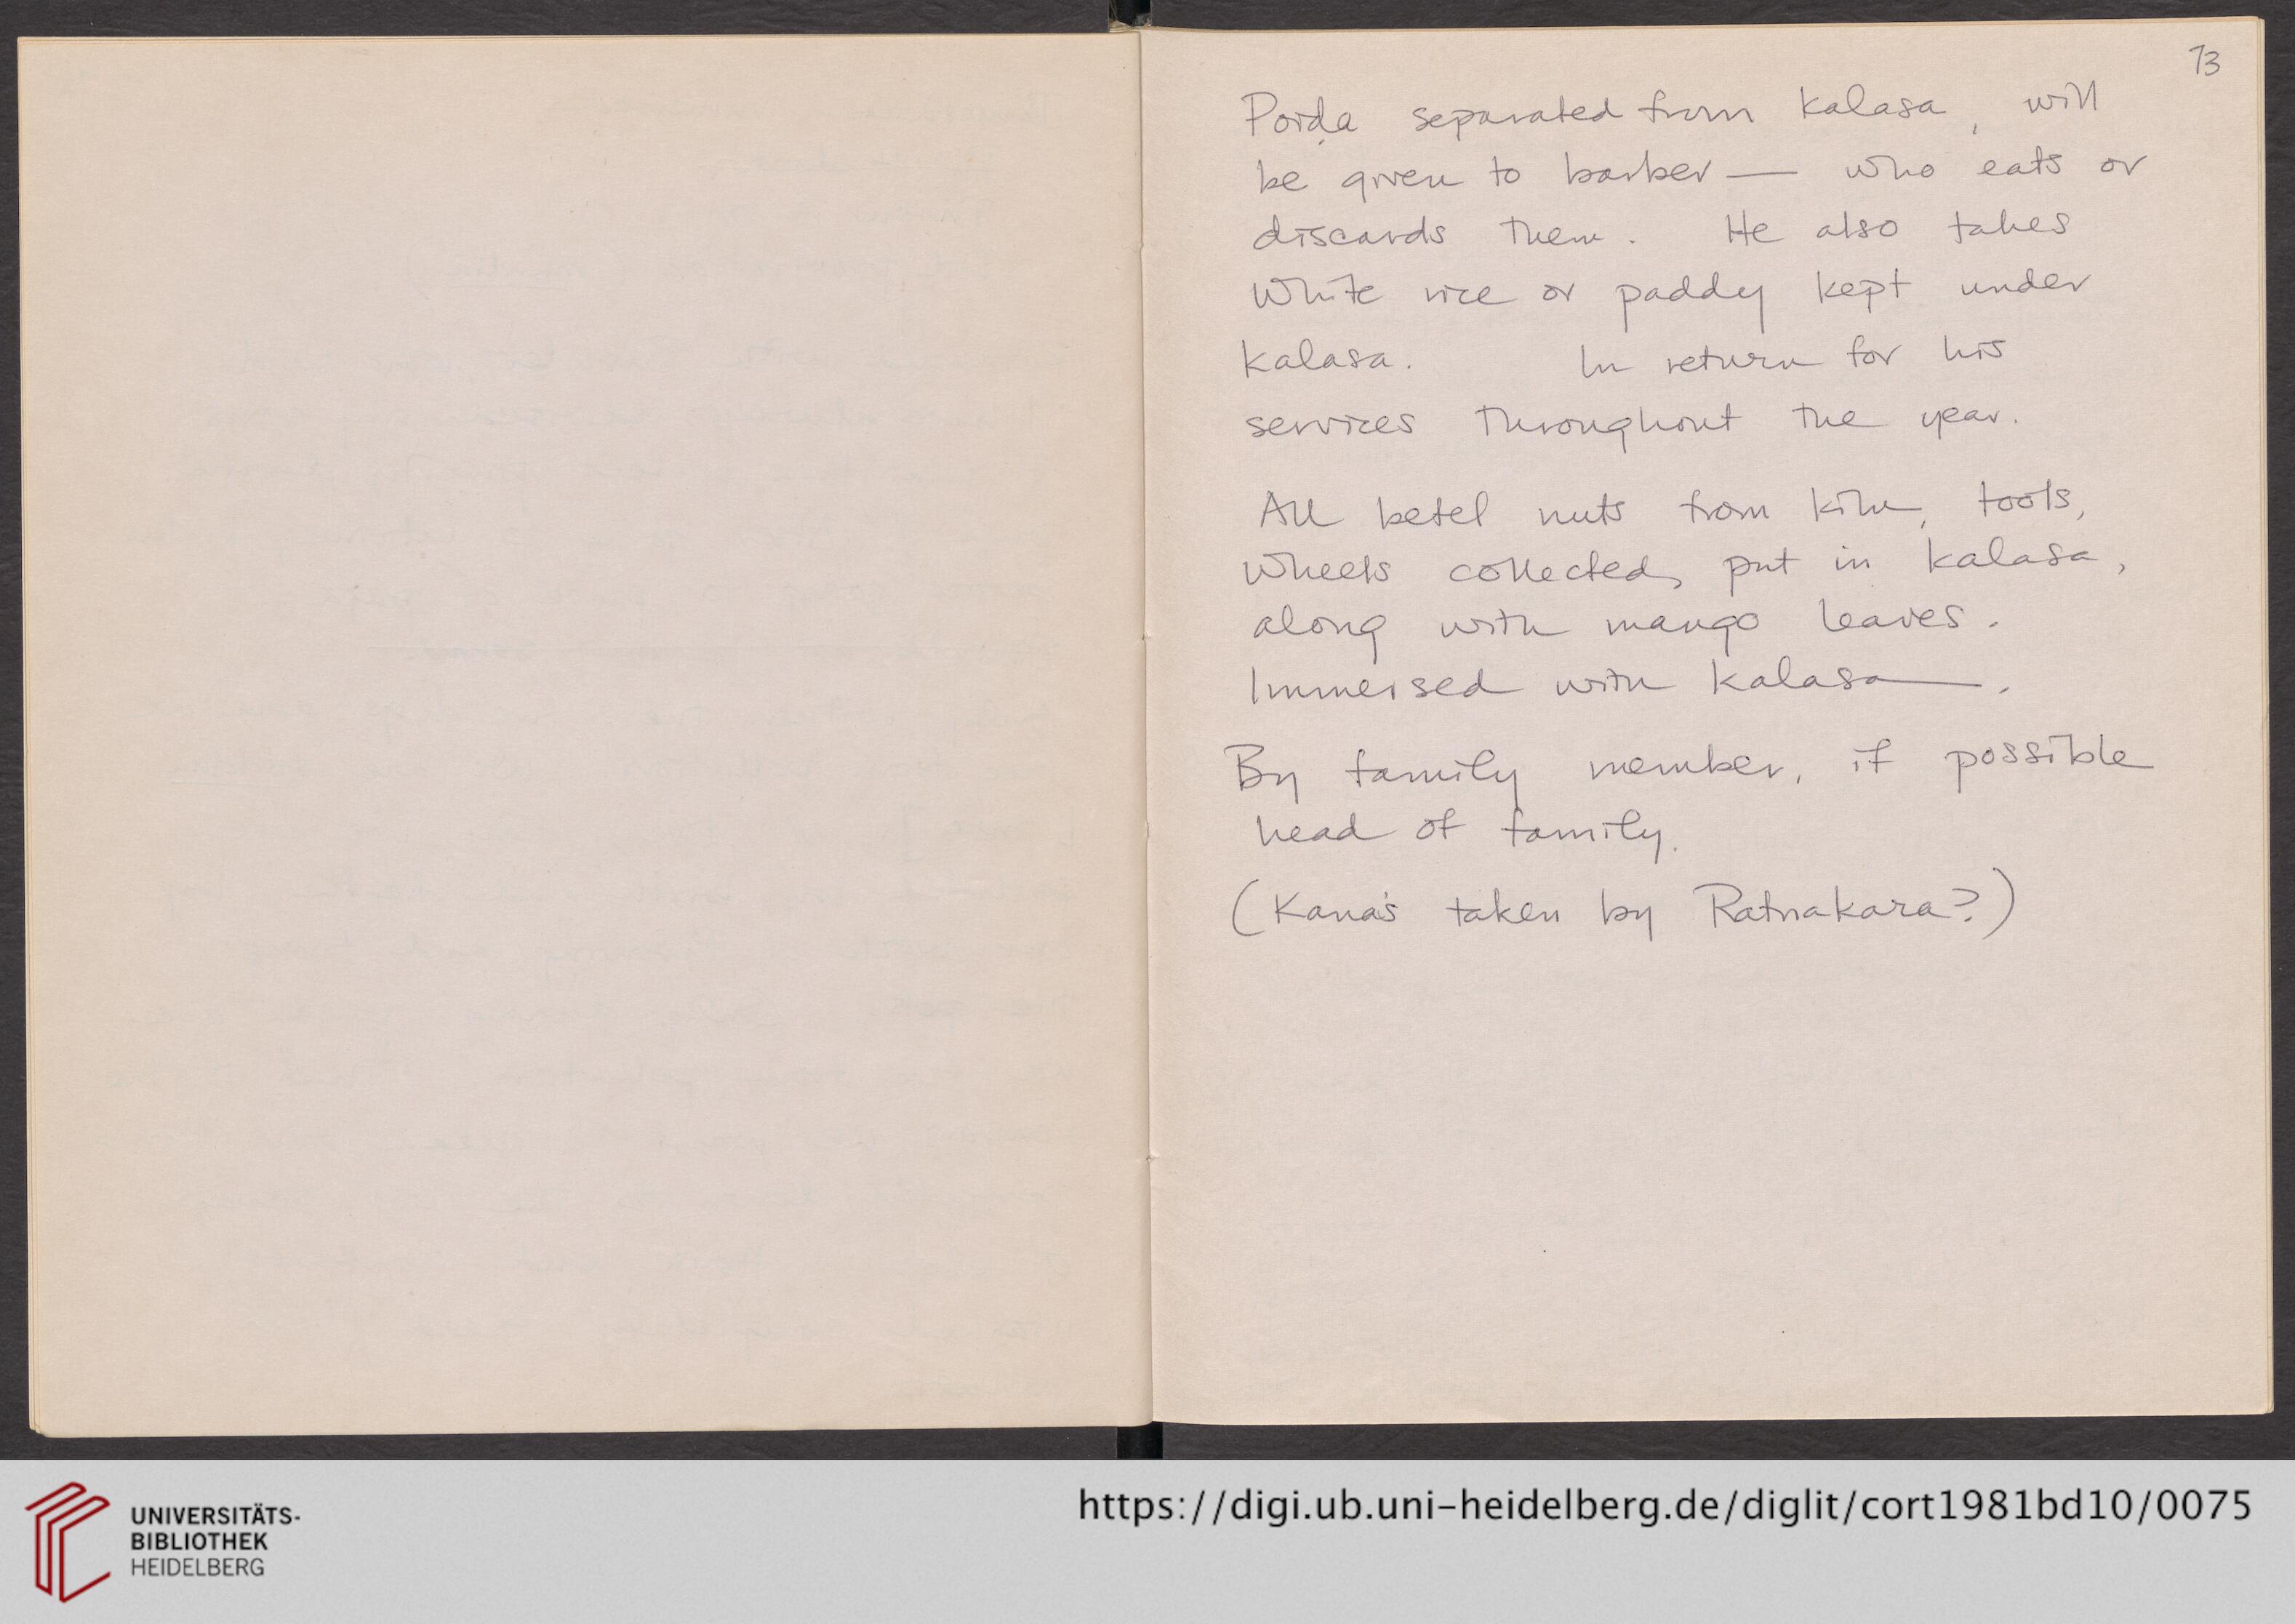 73
Poiḍa separated from kalasa, will
be given to barber — who eats or
discards them. He also takes
white rice or paddy kept under
kalasa. In return for his
services throughout the year.
All betel nuts from kiln, tools,
wheels collected, put in kalasa,
along with mango leaves.
Immersed with kalasa.
By family member, if possible
head of family.
(Kana's taken by Ratnakara?)
UNIVERSITÄTS-
BIBLIOTHEK
HEIDELBERG
https://digi.ub.uni-heidelberg.de/diglit/cort1981bd10/0075